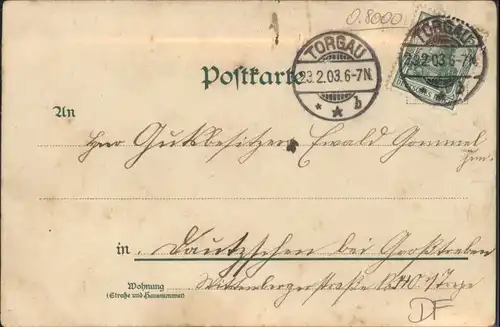 0.8000
TORGAU
23.2.03.6-7N.
* * b
TORGAU
23.2.03.6-7N.
* * b
Postkarte
An
Herr Gutsbesitzer Ewald Gommel
jun.
in Dautzschen bei Großtreben
Wohnung
(Straße und Hausnummer)
Wittenbergerstraße
DF